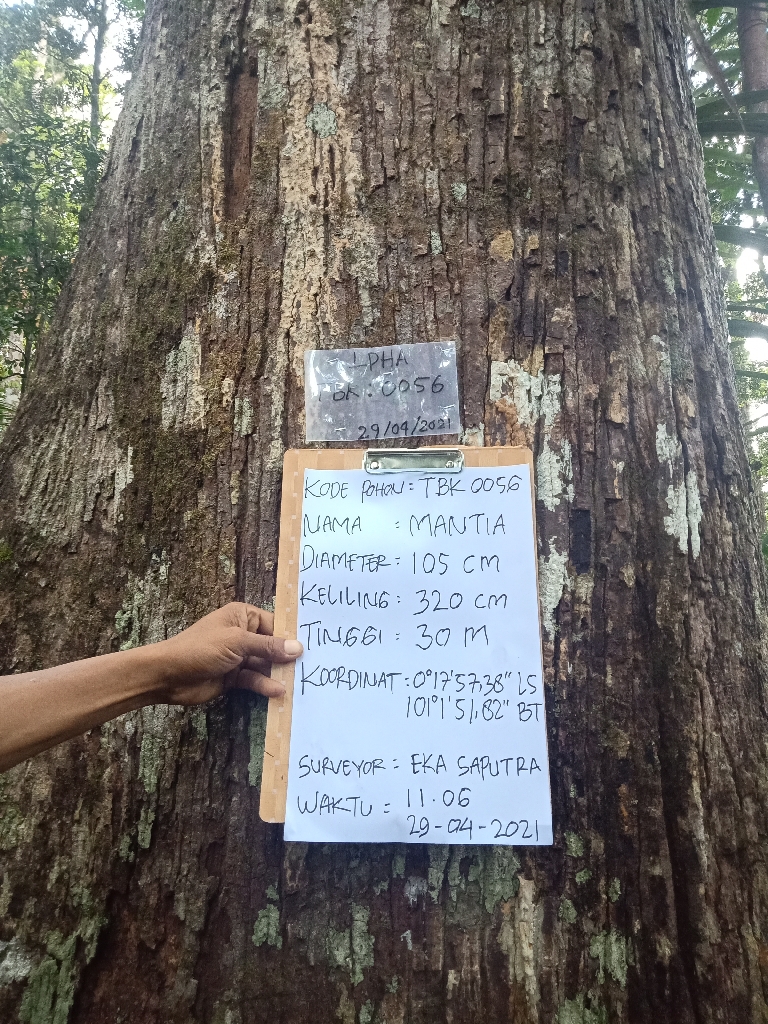 LPHA
TBK : 0056
29/04/2021
KODE POHON : TBK 0056
NAMA : MANTIA
DIAMETER : 105 CM
KELILING : 320 CM
TINGGI : 30 M
KOORDINAT : 0°17'57,38" LS
101°1'51,82" BT
SURVEYOR : EKA SAPUTRA
WAKTU : 11.06
29-04-2021